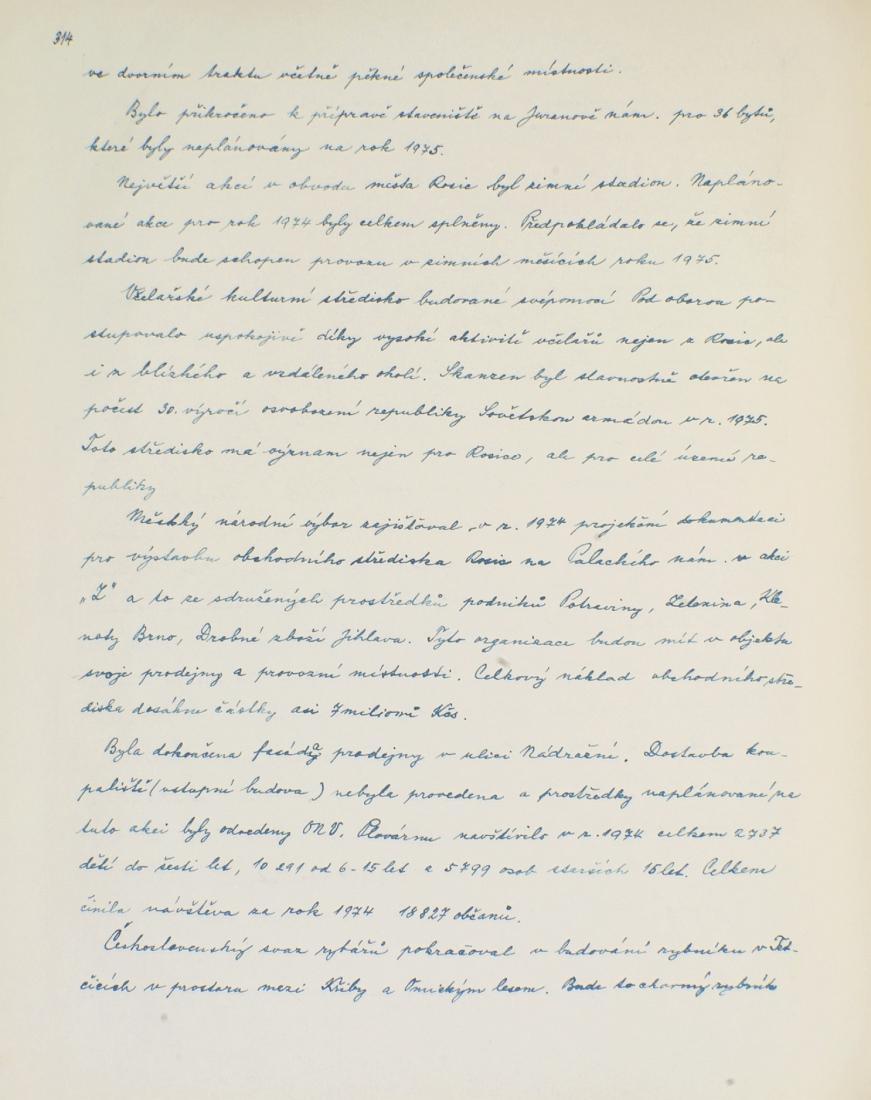 314
ve dvorním traktu včetně pěkné společenské místnosti.
Bylo přikročeno k přípravě staveniště na Juranově nám. pro 36 bytů,
které byly naplánovány na rok 1975.
Největší akcí v obvodu města Rosic byl zimní stadion. Napláno-
vané akce pro rok 1974 byly celkem splněny. Předpokládalo se, že zimní
stadion bude schopen provozu v zimních měsících roku 1975.
Včelařské kulturní středisko budované svépomocí Pod oborou po-
stupovalo uspokojivě díky vysoké aktivitě včelařů nejen z Rosic, ale
i z blízkého a vzdáleného okolí. Skanzen byl slavnostně otevřen na
počest 30. výročí osvobození republiky Sovětskou armádou v r. 1975.
Toto středisko má význam nejen pro Rosice, ale pro celé území re-
publiky
Městský národní výbor zajišťoval v r. 1974 projekční dokumentaci
pro výstavbu obchodního střediska Rosic na Palackého nám. v akci
„Z" a to ze sdružených prostředků podniků Potraviny, Zelenina, Kle-
noty Brno, Drobné zboží Jihlava. Tyto organizace budou mít v objektu
svoje prodejny a provozní místnosti. Celkový náklad obchodního stře-
diska dosáhne částky asi 7 milionů Kčs.
Byla dokončena fasáda prodejny v ulici Nádražní. Dostavba kou-
paliště (vstupní budova) nebyla provedena a prostředky naplánované na
tuto akci byly odvedeny ONV. Plovárnu navštívilo v r. 1974 celkem 2737
dětí do šesti let, 10 291 od 6-15 let a 5799 osob starších 15 let. Celkem
činila návštěva za rok 1974 18 827 občanů.
Československý svaz rybářů pokračoval v budování rybníku v Tet-
čicích v prostoru mezi Křiby a Omickým lesem. Bude to chovný rybník